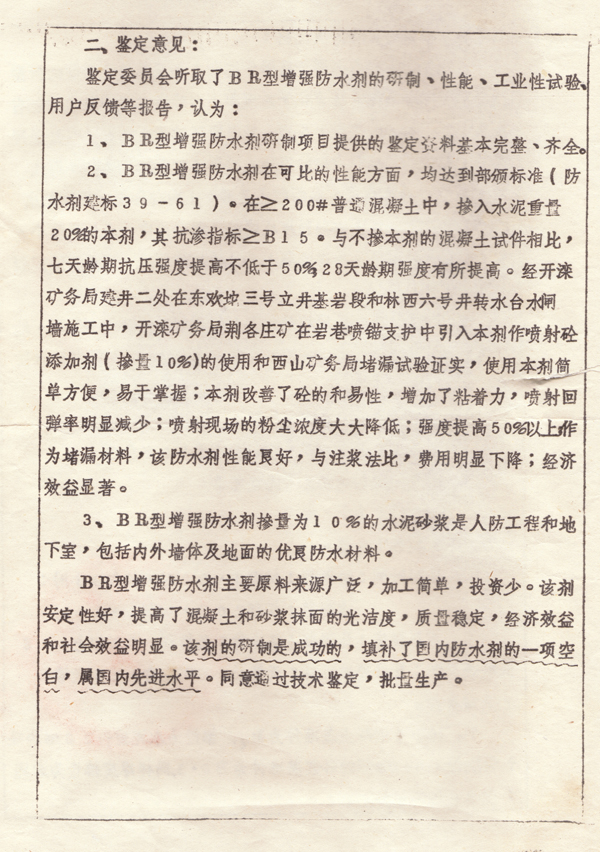 二、鉴定意见：
鉴定委员会听取了BR型增强防水剂的研制、性能、工业性试验、
用户反馈等报告，认为：
1、BR型增强防水剂研制项目提供的鉴定资料基本完整、齐全。
2、BR型增强防水剂在可比的性能方面，均达到部颁标准（防
水剂建标39-61）。在≥200#普通混凝土中，掺入水泥重量
20%的本剂，其抗渗指标≥B15。与不掺本剂的混凝土试件相比，
七天龄期抗压强度提高不低于50%，28天龄期强度有所提高。经开滦
矿务局建井二处在东欢坨三号立井基岩段和林西六号井转水台水闸
墙施工中，开滦矿务局荆各庄矿在岩巷喷锚支护中引入本剂作喷射砼
添加剂（掺量10%）的使用和西山矿务局堵漏试验证实，使用本剂简
单方便，易于掌握；本剂改善了砼的和易性，增加了粘着力，喷射回
弹率明显减少；喷射现场的粉尘浓度大大降低；强度提高50%以上作
为堵漏材料，该防水剂性能良好，与注浆法比，费用明显下降；经济
效益显著。
3、BR型增强防水剂掺量为10%的水泥砂浆是人防工程和地
下室，包括内外墙体及地面的优良防水材料。
BR型增强防水剂主要原料来源广泛，加工简单，投资少。该剂
安定性好，提高了混凝土和砂浆抹面的光洁度，质量稳定，经济效益
和社会效益明显。该剂的研制是成功的，填补了国内防水剂的一项空
白，属国内先进水平。同意通过技术鉴定，批量生产。